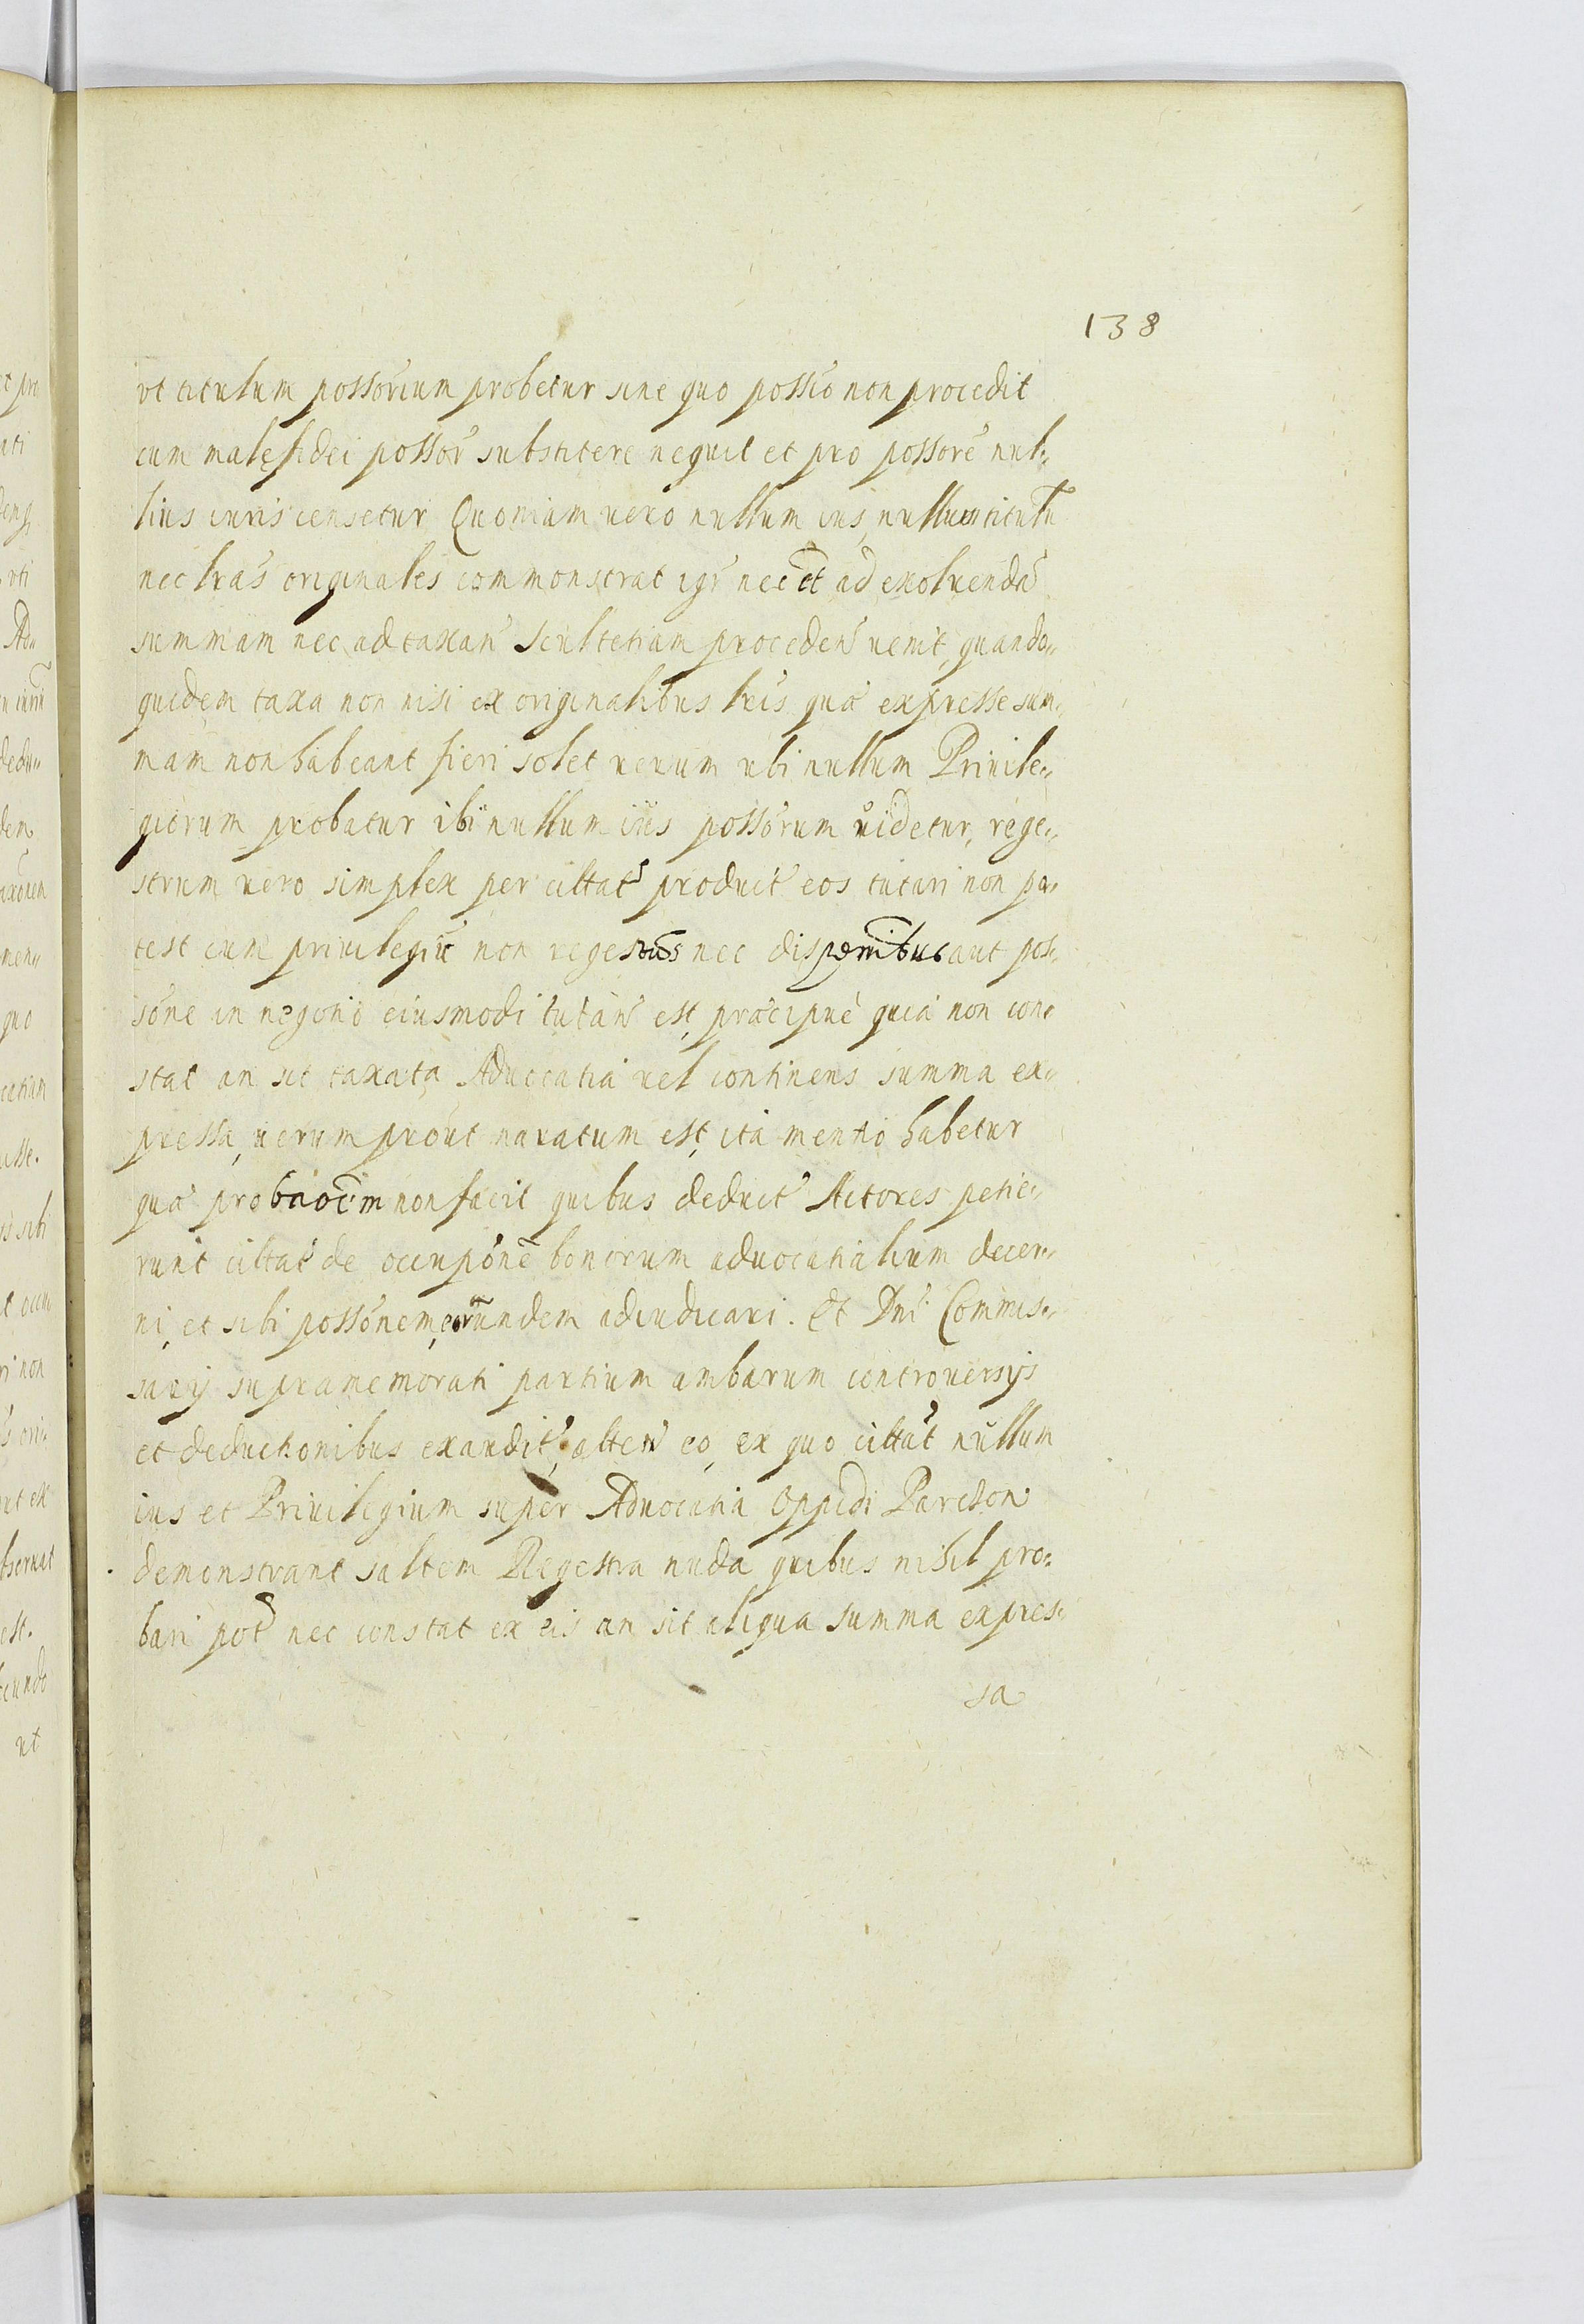 138
ut titulum possorium probetur sine quo possio non procedit
cum malę fidei possor substitere nequit et pro possore nul-
lius iuris censetur Quoniam uero nullum ius, nullum titulu
nec lras originales commonstrat igr nec et ad exoluenda
summam nec ad taxan Scultetiam proceden uenit, quando-
quidem taxa non nisi ex originalibus lris quæ expresse sum-
mam non habeant fieri solet uerum ubi nullum Priuile-
giorum probatur ibi nullum ius possorum uidetur, rege-
strum uero simplex per cittat produit eos tutari non po-
test cum priuilegiis non regestris nec dispenibus aut pos-
sone in negotio eiusmodi tutan est, præcipuè quia non con-
stat an sit taxata Aduocatia uel continens summa ex-
pressa, uerum prout naratum est, ita mentio habetur
quæ probaoem non facit quibus deduct Actores petie-
runt cittat de occupone bonorum aduocatialium decer-
ni, et sibi possonem, eorundem adiudicari. Et Dni Commis-
sarij supramemorati partium ambarum controuersijs
et deductionibus exaudit, atten eo, ex quo cittat nullum
ius et Priuilegium super Aduocatia Oppidi Parczow
demonstrant saltem Regestra nuda quibus nihil pro-
bari pot nec constat ex eis an sit aliqua summa expres-
sa